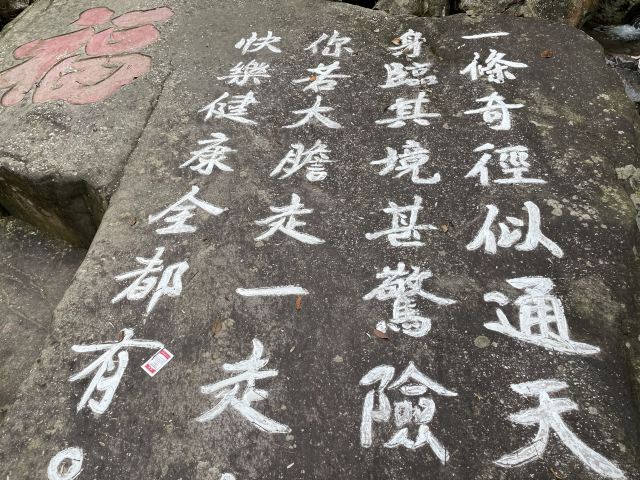 一條奇徑似通天
身臨其境甚驚險
你若大膽走一走
快樂健康全都有。
福